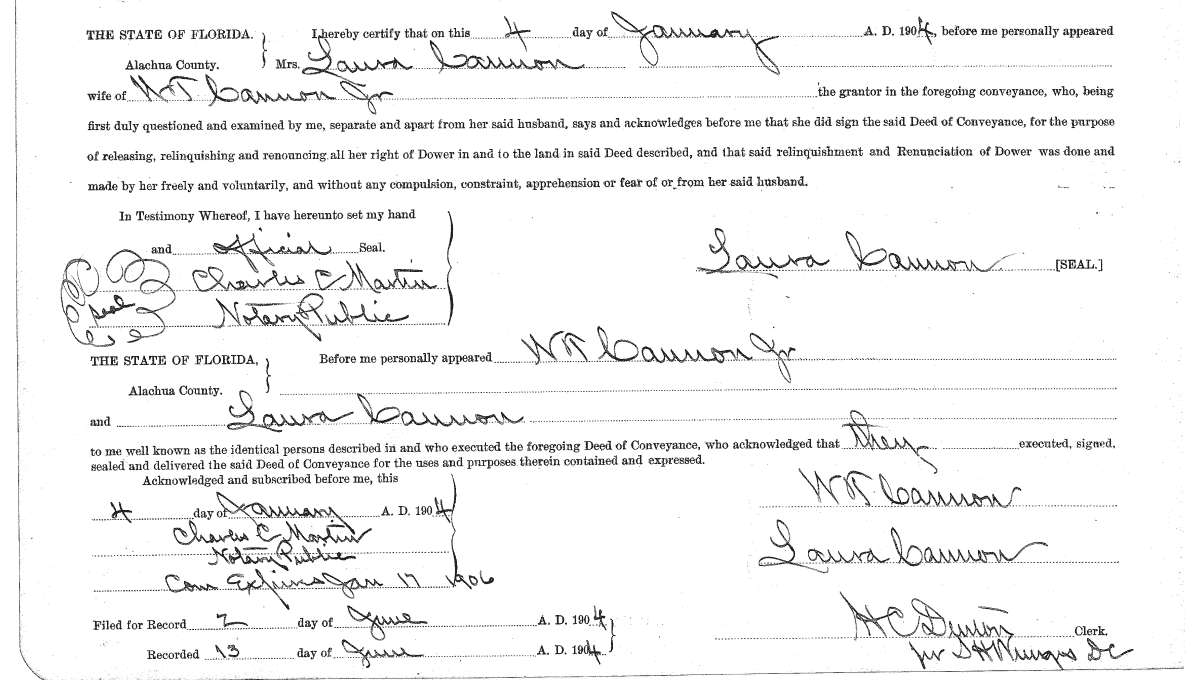 THE STATE OF FLORIDA. } I hereby certify that on this 4 day of January A. D. 1904, before me personally appeared
Alachua County. Mrs. Laura Cannon
wife of WT Cannon Jr the grantor in the foregoing conveyance, who, being
first duly questioned and examined by me, separate and apart from her said husband, says and acknowledges before me that she did sign the said Deed of Conveyance, for the purpose
of releasing, relinquishing and renouncing all her right of Dower in and to the land in said Deed described, and that said relinquishment and Renunciation of Dower was done and
made by her freely and voluntarily, and without any compulsion, constraint, apprehension or fear of or from her said husband.
In Testimony Whereof, I have hereunto set my hand
and official Seal.
Laura Cannon [SEAL.]
Charles C Martin
seal
Notary Public
THE STATE OF FLORIDA, } Before me personally appeared WT Cannon Jr
Alachua County.
and Laura Cannon
to me well known as the identical persons described in and who executed the foregoing Deed of Conveyance, who acknowledged that they executed, signed,
sealed and delivered the said Deed of Conveyance for the uses and purposes therein contained and expressed.
Acknowledged and subscribed before me, this
WT Cannon
4 day of January A. D. 1904
Charles C Martin
Notary Public
Laura Cannon
Com Expires Jan 17 1906
Filed for Record 2 day of June A. D. 1904
H C Denton Clerk.
Recorded 13 day of June A. D. 1904
per S H DC